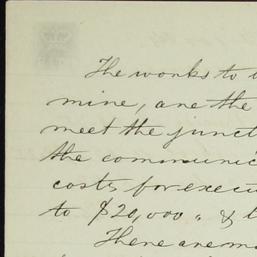 The works to
mine, are the
meet the junct
the communic
costs for execu
to $20,000, & 
There are m